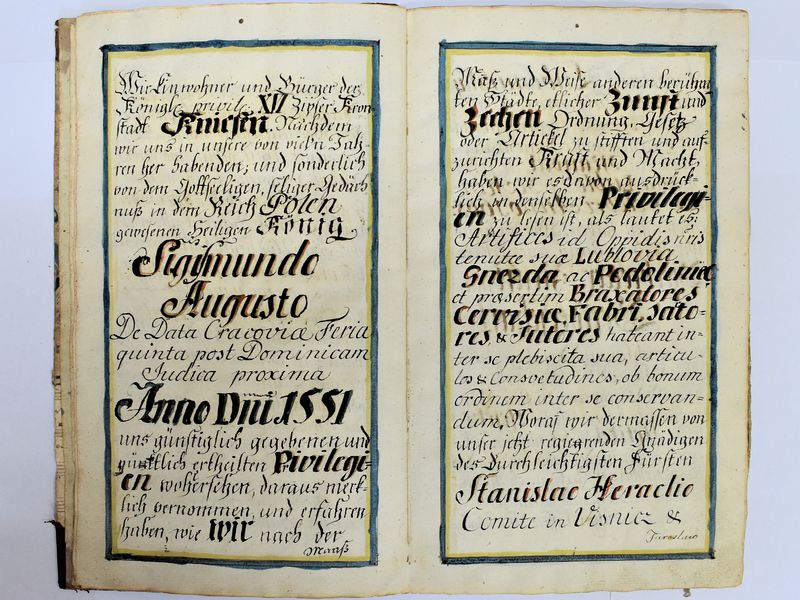 Wir Einwohner und Bürger der
Königl: privile: XVI Zipser Kron
stadt Kniesen. Nachdem
wir uns in unsere von vielen Jah-
ren her habenden; und sonderlich
von dem Gottseeligen, seliger Gedäch
nuß in dem Reich Polen
gewesenen Heiligen König
Sigismundo
Augusto
De Data Cracoviæ Feria
quinta post Dominicam
Judica proxima
Anno Dni 1551
uns günstiglich gegebenen und
günstlich ertheilten Privilegi-
en wohersehen, daraus merk-
lich vernommen, und erfahren
haben, wie wir nach der
Maaß
Maß und Weise anderen berühm
ten Städte, etlicher Zunft und
Zechen Ordnung, Gesetz
oder Artickel zu stifften und auf-
zurichten Krafft und Macht
haben wir es davon ausdrück-
lich in denselben Privilegi-
en zu lesen ist, als lautet es:
Artifices id Oppidis nris
tenutæ suæ Lublovia
Gnezda ac Podoliniæ
et præsertim Braxatores
Cervisiæ, Fabri, Sato-
res & Sutores habeant in-
ter se plebiscita sua, articu-
los & Consvetudines, ob bonum
ordinem inter se conservan-
dum. Woraus wir dermassen von
unser jetzt regierenden Gnädigen
des Durchleichtigsten Fürsten
Stanislao Heraclio
Comite in Visnicz &
Jaroslavo